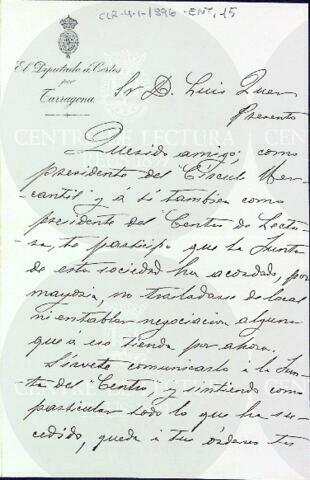 CLR-4-1-1896-ENT, 15
El Diputado á Cortes
por
Tarragona.
Sr D. Luis Quer
Presente
Querido amigo; como
presidente del Círculo Mer-
cantil y á tí tambien como
presidente del Centro de Lectu-
ra, te participo que la Junta
de esta sociedad ha acordado, por
mayoria, no trasladarse de local
ni entablar negociacion alguna
que á eso tienda por ahora.
Sírvete comunicarlo á la Jun-
ta del Centro, y sintiendo como
particular todo lo que ha su-
cedido, queda á tus órdenes tu
CENTRE DE LECTURA
REUS 1859